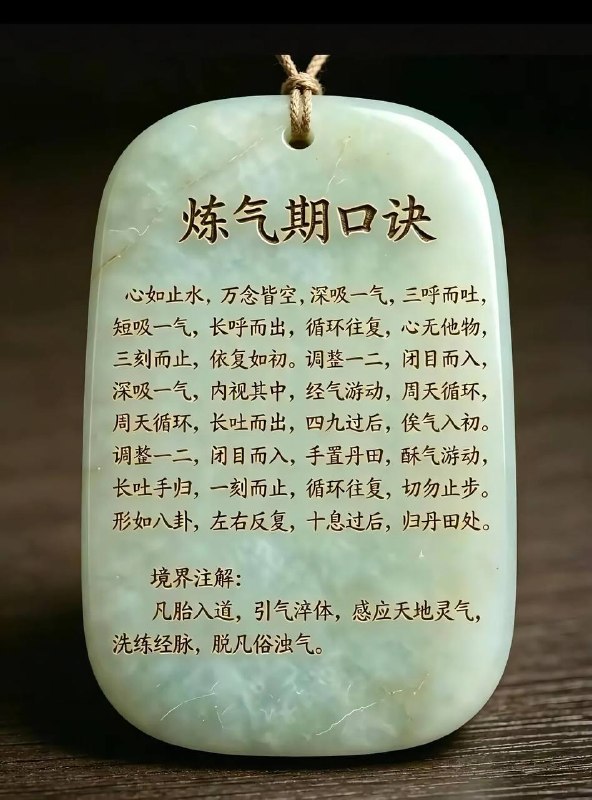 炼气期口诀
心如止水，万念皆空，深吸一气，三呼而吐，
短吸一气，长呼而出，循环往复，心无他物，
三刻而止，依复如初。调整一二，闭目而入，
深吸一气，内视其中，经气游动，周天循环，
周天循环，长吐而出，四九过后，俟气入初。
调整一二，闭目而入，手置丹田，酥气游动，
长吐手归，一刻而止，循环往复，切勿止步。
形如八卦，左右反复，十息过后，归丹田处。
境界注解：
凡胎入道，引气淬体，感应天地灵气，
洗练经脉，脱凡俗浊气。